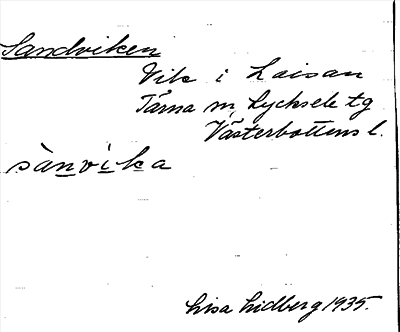 Sandviken
Vik i Laisan
Tärna sn, Lycksele tg
Västerbottens l.
sànvika
Lisa Lidberg 1935.